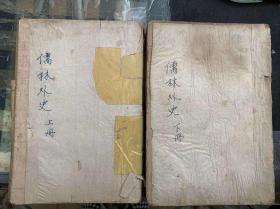 儒林外史 上册
儒林外史 下册